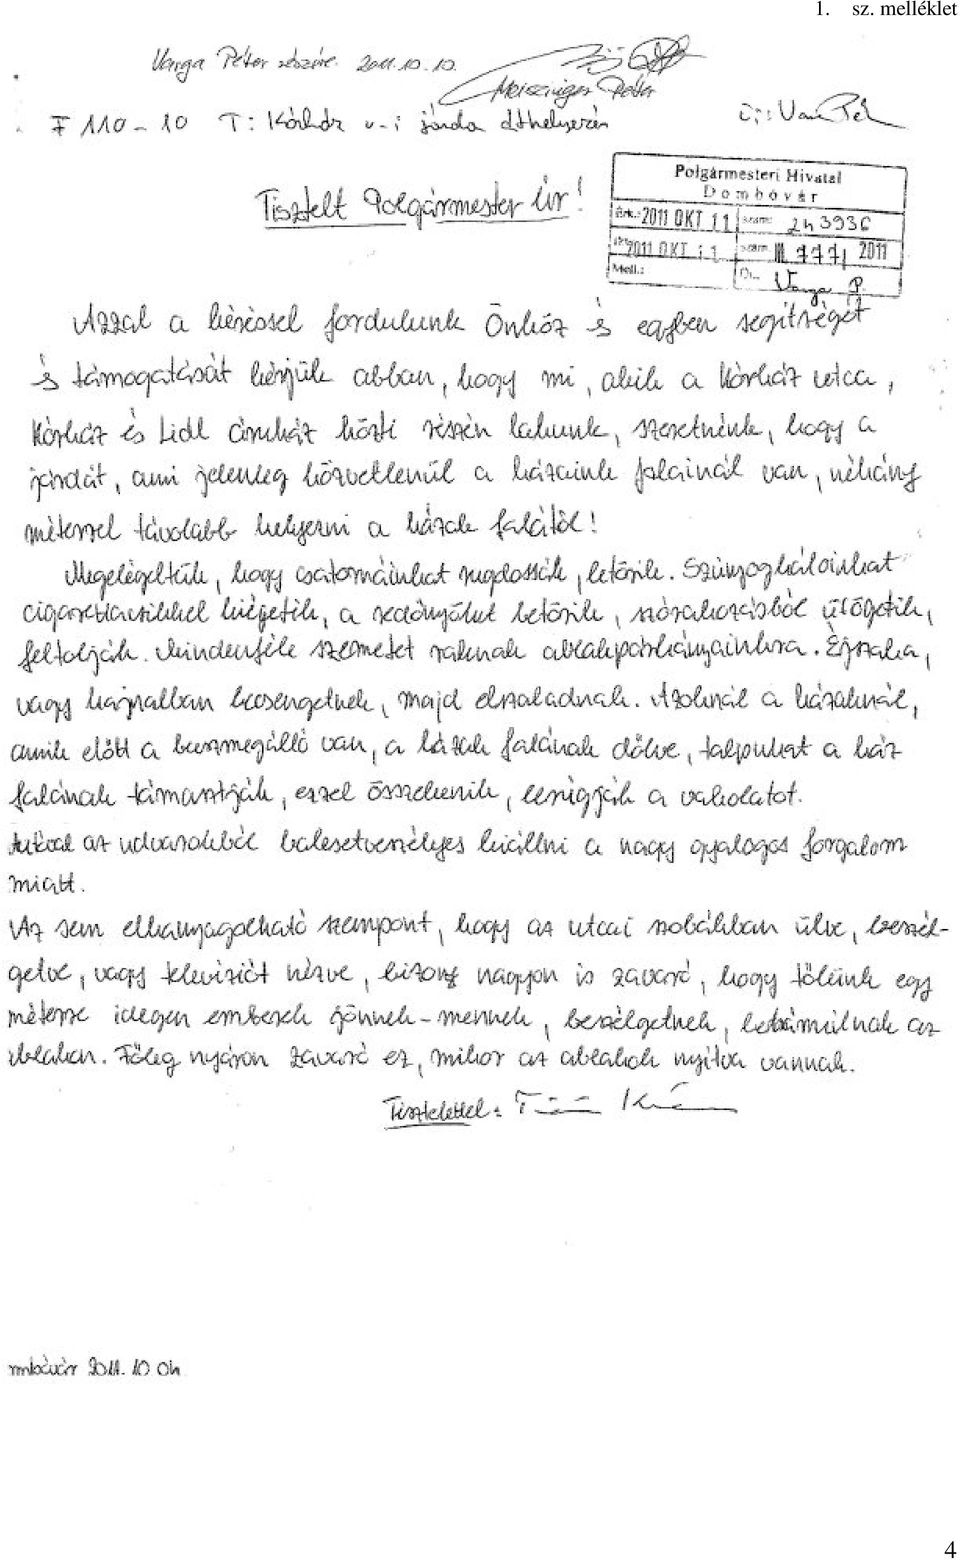 1. sz. melléklet
Varga Péter részére 2011.10.10.
Meiszinger Péter
F 110-10 T: Kórház u-i járda áthelyezés
Tisztelt Polgármester Úr!
Polgármesteri Hivatal
Dombóvár
Érk.: 2011 OKT 11 szám: 243936
2011 OKT 11 szám III. 1771 2011
Mell.: Varga P.
Azzal a kéréssel fordulunk Önhöz és egyben segítségét
és támogatását kérjük abban, hogy mi, akik a Kórház utca,
Kórház és Lidl áruház közti részén lakunk, szeretnénk, hogy a
járdát, ami jelenleg közvetlenül a házaink falainál van, néhány
méterrel távolabb helyezni a házak falától!
Megelégeltük, hogy csatornáinkat rugdossák, letörik. Szúnyoghálóinkat
cigarettacsikkel kiégetik, a redőnyöket betörik, szórakozásból ütögetik,
feltolják. Mindenféle szemetet raknak ablakpárkányainkra. Éjszaka,
vagy hajnalban becsengetnek, majd elszaladnak. Azoknál a házaknál,
amik előtt a buszmegálló van, a házak falának dőlve, talpukat a ház
falának támasztják, ezzel összekenik, lerúgják a vakolatot.
Autóval az udvarokból balesetveszélyes kiállni a nagy gyalogos forgalom
miatt.
Az sem elhanyagolható szempont, hogy az utcai szobákban ülve, beszél-
getve, vagy televíziót nézve, bizony nagyon is zavaró, hogy tőlünk egy
méterre idegen emberek jönnek-mennek, beszélgetnek, bebámulnak az
ablakon. Főleg nyáron zavaró ez, mikor az ablakok nyitva vannak.
Tisztelettel:
mbóvár 2011. 10 04
4